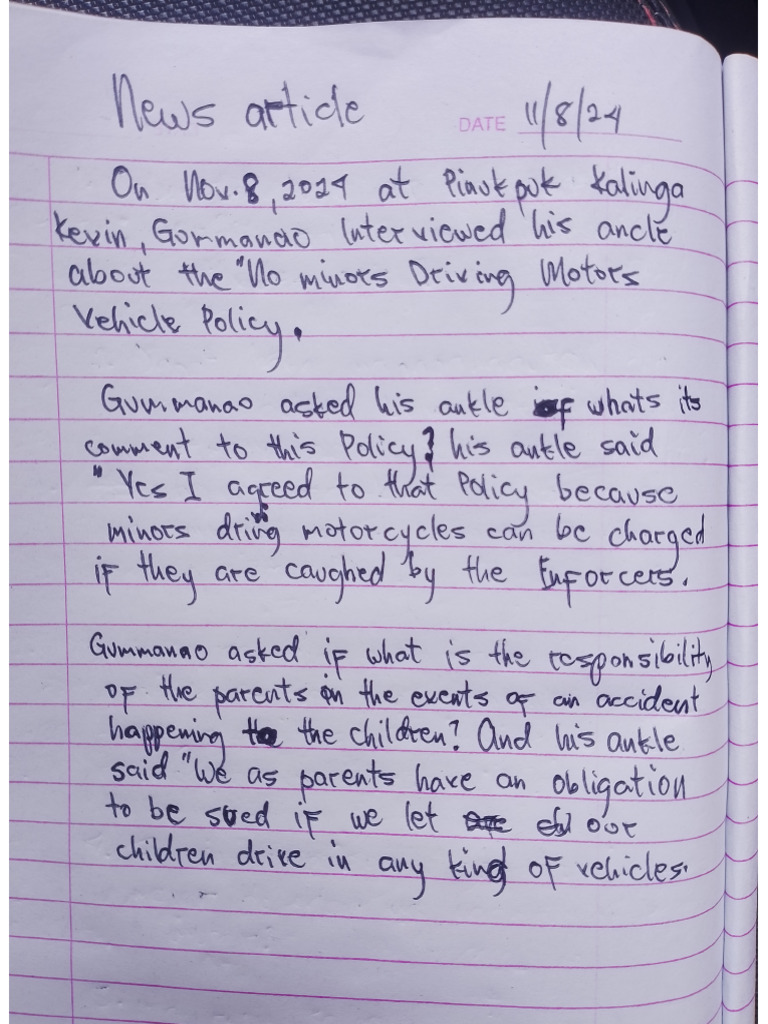 News article
DATE 11/8/24
On Nov. 8, 2024 at Pinukpuk Kalinga
Kevin, Gurmanao Interviewed his ancle
about the "No minors Driving Motors
Vehicle Policy.
Gummanao asked his ankle if whats its
comment to this Policy? his ankle said
"Yes I agreed to that Policy because
minors driving motorcycles can be charged
if they are caughed by the Enforcers.
Gummanao asked if what is the responsibility
of the parents in the events of an accident
happening to the children? And his ankle
said "We as parents have an obligation
to be sued if we let our
children drive in any kind of vehicles.